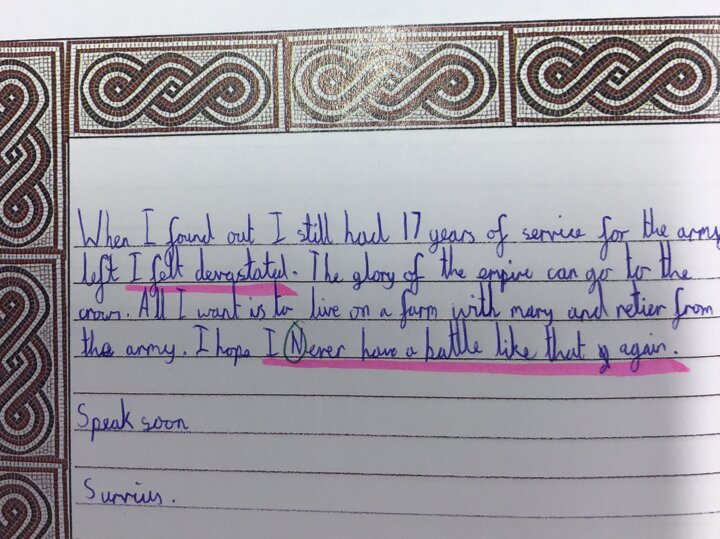 When I found out I still had 17 years of service for the army
left I felt devastated. The glory of the empire can go to the
crows. All I want is to live on a farm with mary and retier from
the army. I hope I Never have a battle like that again.
Speak soon
Survius.